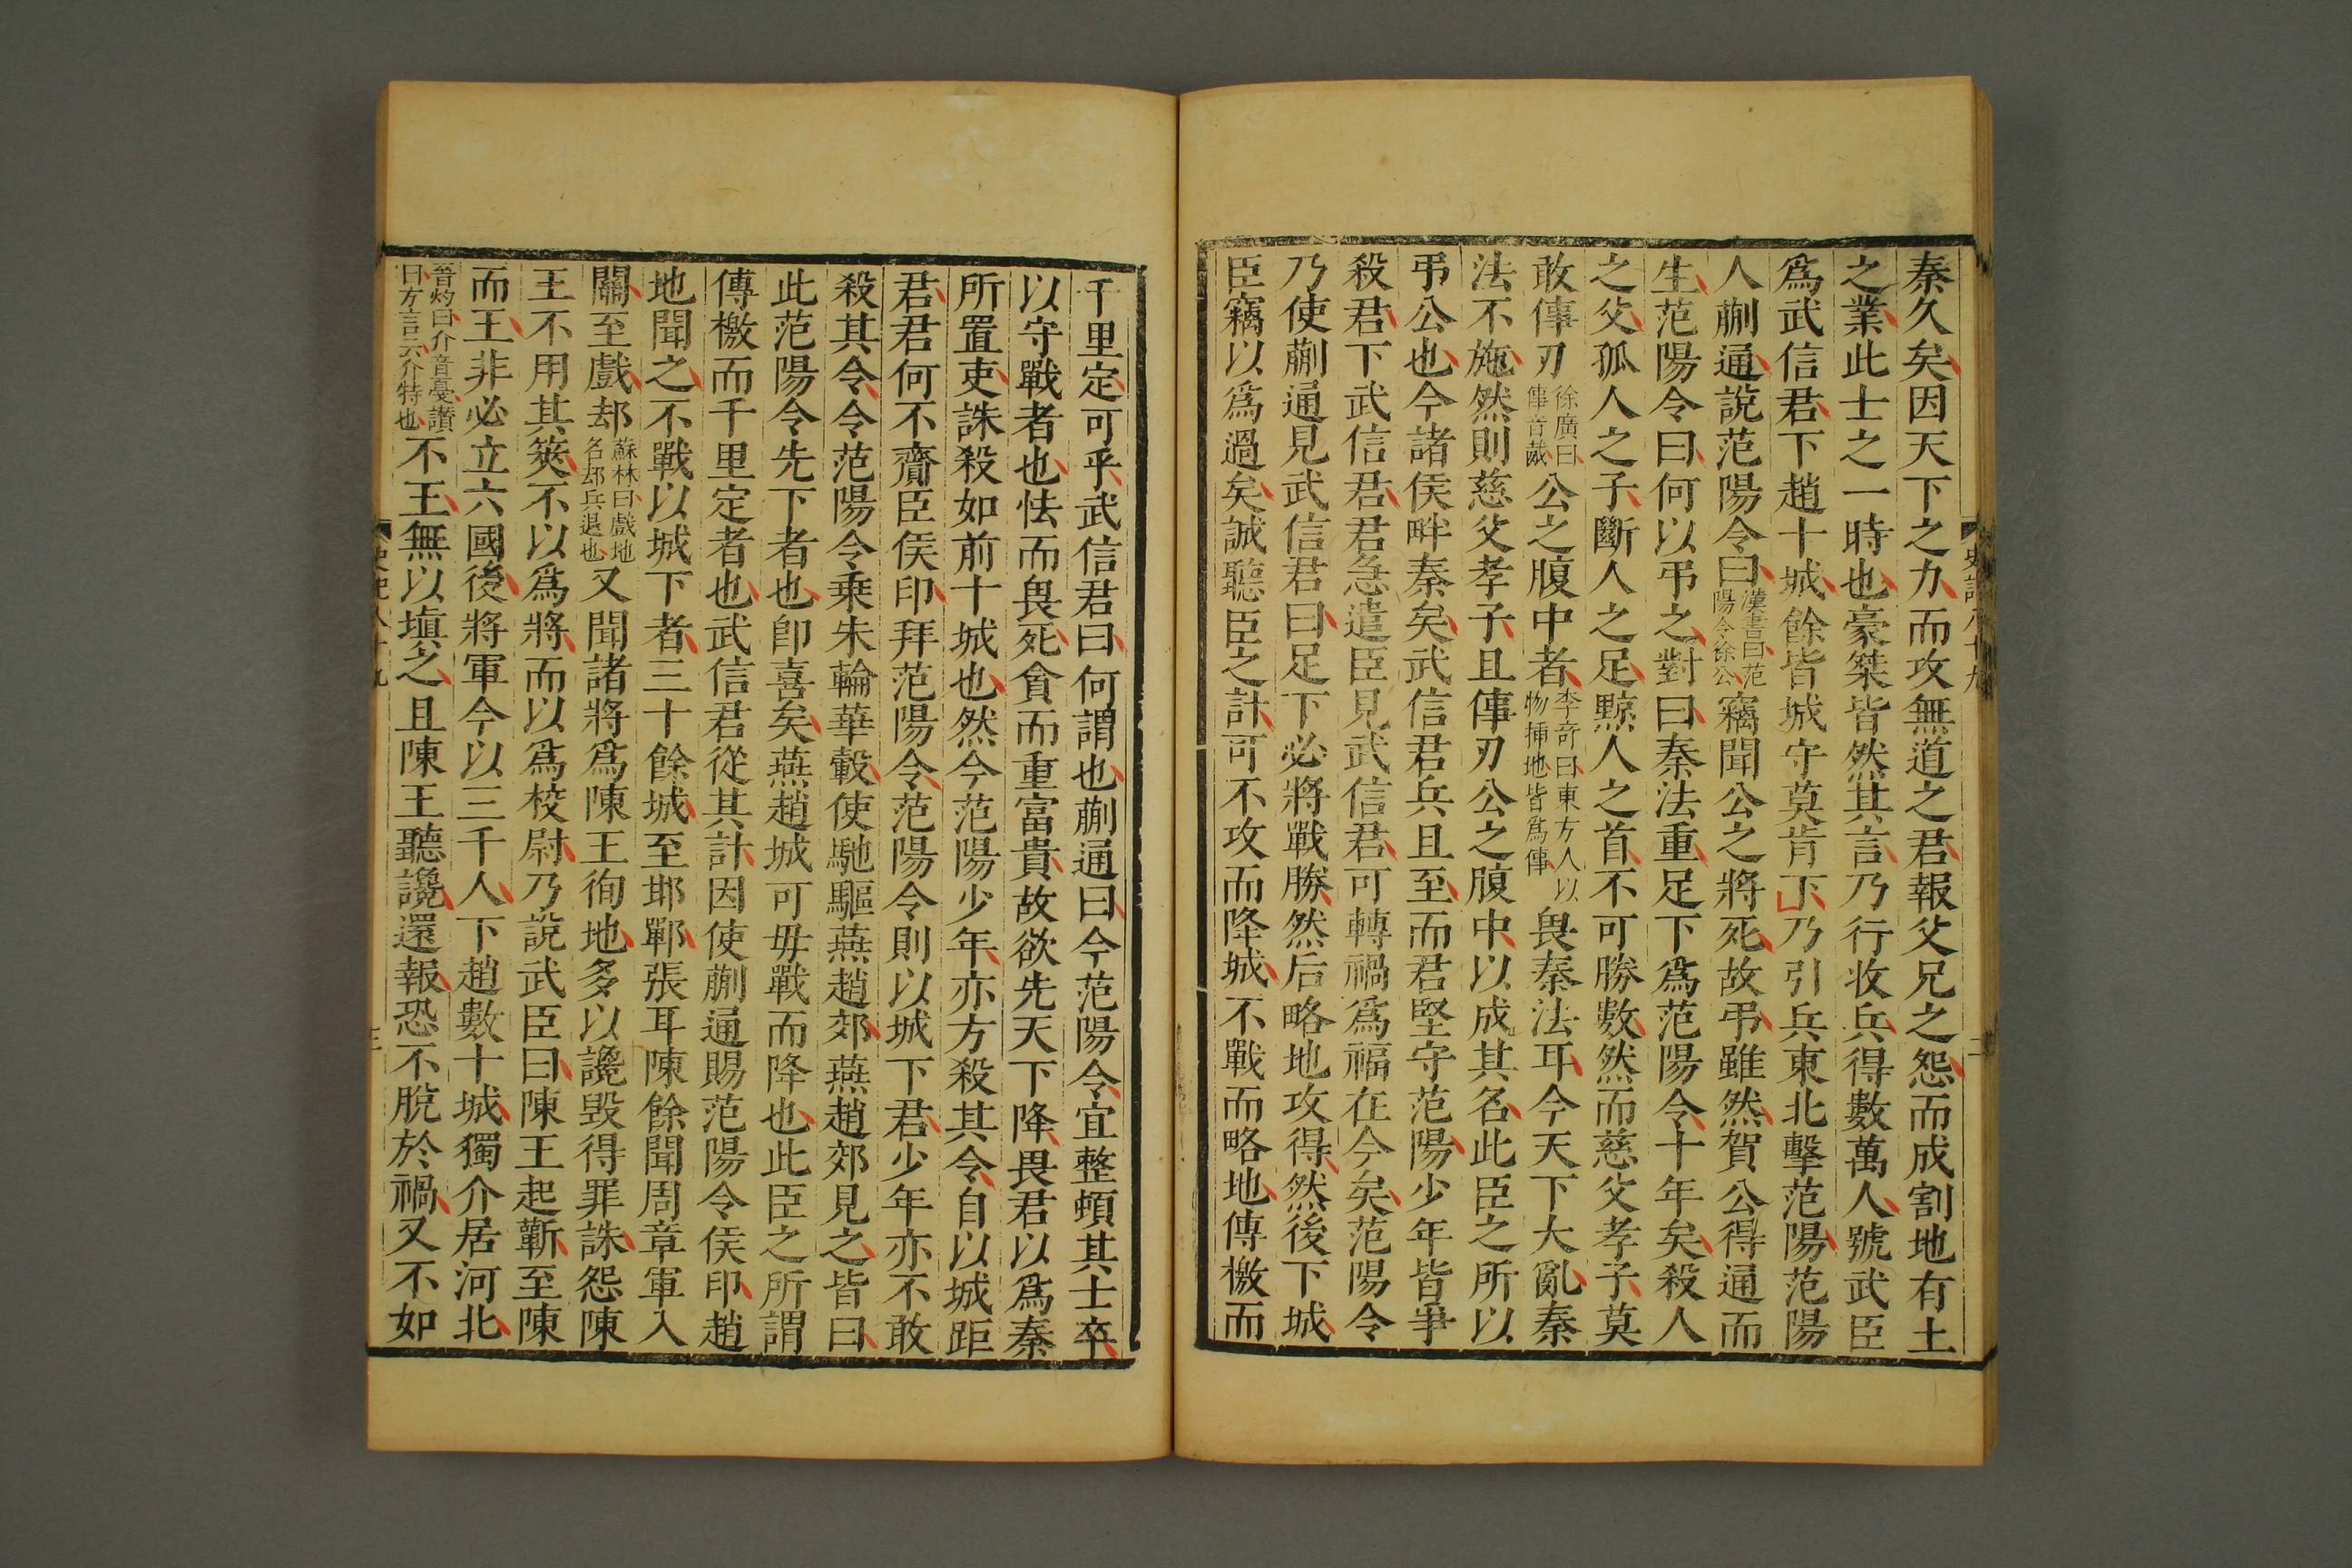 秦久矣因天下之力而攻無道之君報父兄之怨而成割地有土
之業此士之一時也豪桀皆然其言乃行收兵得數萬人號武臣
爲武信君下趙十城餘皆城守莫肯下乃引兵東北擊范陽范陽
人蒯通說范陽令曰漢書曰范陽令徐公竊聞公之將死故弔雖然賀公得通而
生范陽令曰何以弔之對曰秦法重足下爲范陽令十年矣殺人
之父孤人之子斷人之足黥人之首不可勝數然而慈父孝子莫
敢倳刃徐廣曰倳音胾公之腹中者李奇曰東方人以物揷地皆爲倳畏秦法耳今天下大亂秦
法不施然則慈父孝子且倳刃公之腹中以成其名此臣之所以
弔公也今諸侯畔秦矣武信君兵且至而君堅守范陽少年皆爭
殺君下武信君君急遣臣見武信君可轉禍爲福在今矣范陽令
乃使蒯通見武信君曰足下必將戰勝然后略地攻得然後下城
臣竊以爲過矣誠聽臣之計可不攻而降城不戰而略地傳檄而
千里定可乎武信君曰何謂也蒯通曰今范陽令宜整頓其士卒
以守戰者也怯而畏死貪而重富貴故欲先天下降畏君以爲秦
所置吏誅殺如前十城也然今范陽少年亦方殺其令自以城距
君君何不齎臣侯印拜范陽令范陽令則以城下君少年亦不敢
殺其令令范陽令乘朱輪華轂使馳驅燕趙郊燕趙郊見之皆曰
此范陽令先下者也卽喜矣燕趙城可毋戰而降也此臣之所謂
傳檄而千里定者也武信君從其計因使蒯通賜范陽令侯印趙
地聞之不戰以城下者三十餘城至邯鄲張耳陳餘聞周章軍入
關至戲却蘇林曰戲地名却兵退也又聞諸將爲陳王徇地多以讒毀得罪誅怨陳
王不用其筴不以爲將而以爲校尉乃說武臣曰陳王起蘄至陳
而王非必立六國後將軍今以三千人下趙數十城獨介居河北
晉灼曰介音戞讚曰方言云介特也不王無以塡之且陳王聽讒還報恐不脫於禍又不如
史記八十九
二
史記八十九
三